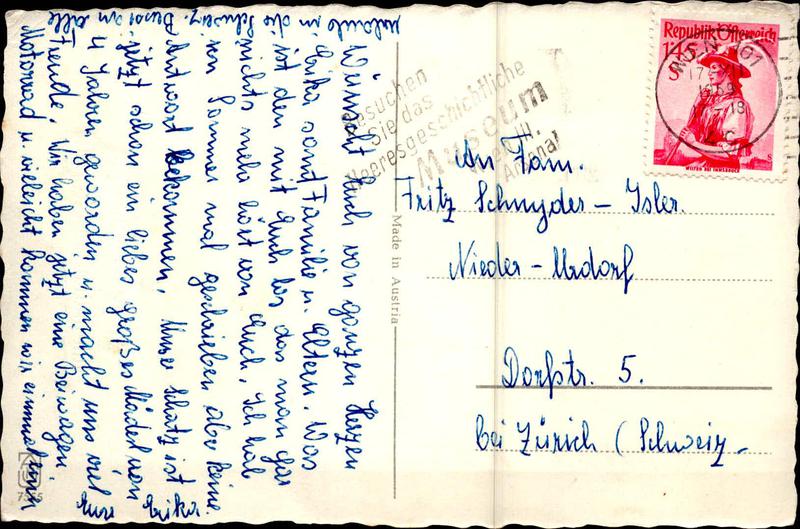 Wünscht Euch von ganzen Herzen
Erika samt Familie u. Eltern. Was
ist den mit Euch los das man gar
nichts mehr hört von Euch. Ich hab
im Sommer mal geschrieben aber keine
Antwort bekommen. Unser Schatz ist
jetzt schon ein liebes großes Mäderl von
4 Jahren geworden u. macht uns viel
Freude. Wir haben jetzt eine Beiwagen
Motorrad u. vieleicht kommen wir einmal im
Urlaub in die Schweiz. Bussi an alle
Eure Erika
Besuchen
Sie das
Heeresgeschichtliche
Museum
Arsenal
Republik Österreich
1959
WILTEN BEI INNSBRUCK
An Fam.
Fritz Schnyder - Isler.
Nieder - Urdorf
Dorfstr. 5.
bei Zürich (Schweiz-
Made in Austria